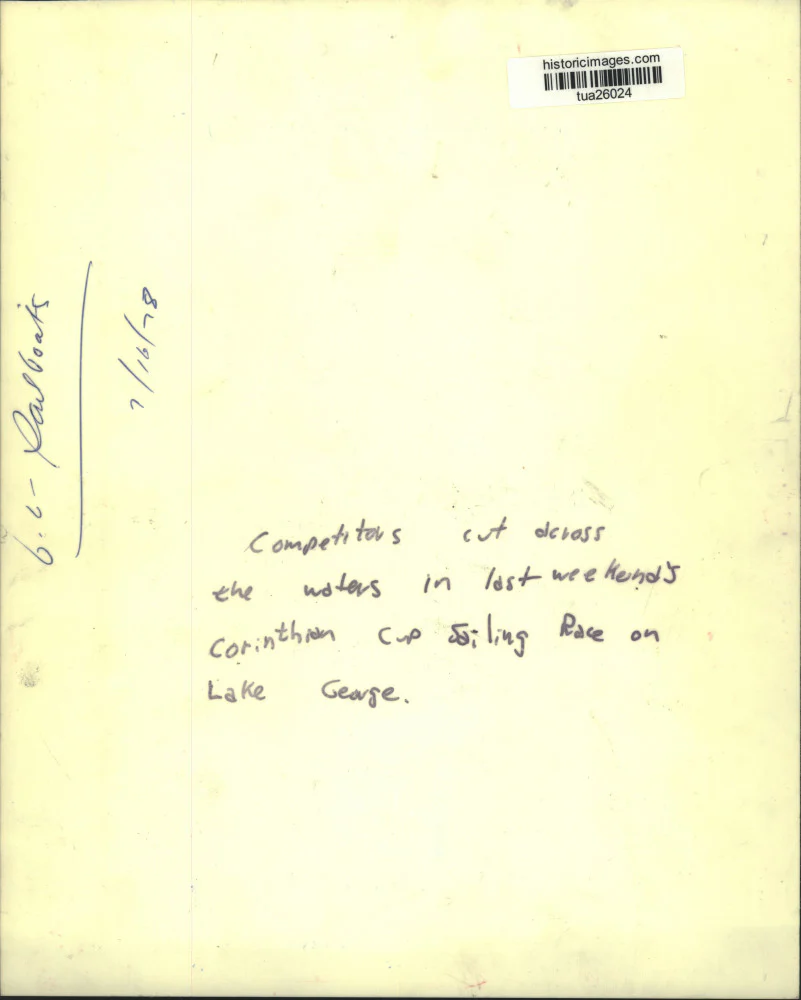 historicimages.com
tua26024
Sailboats
7/16/78
Competitors cut across
the waters in last weekend's
Corinthian Cup Sailing Race on
Lake George.